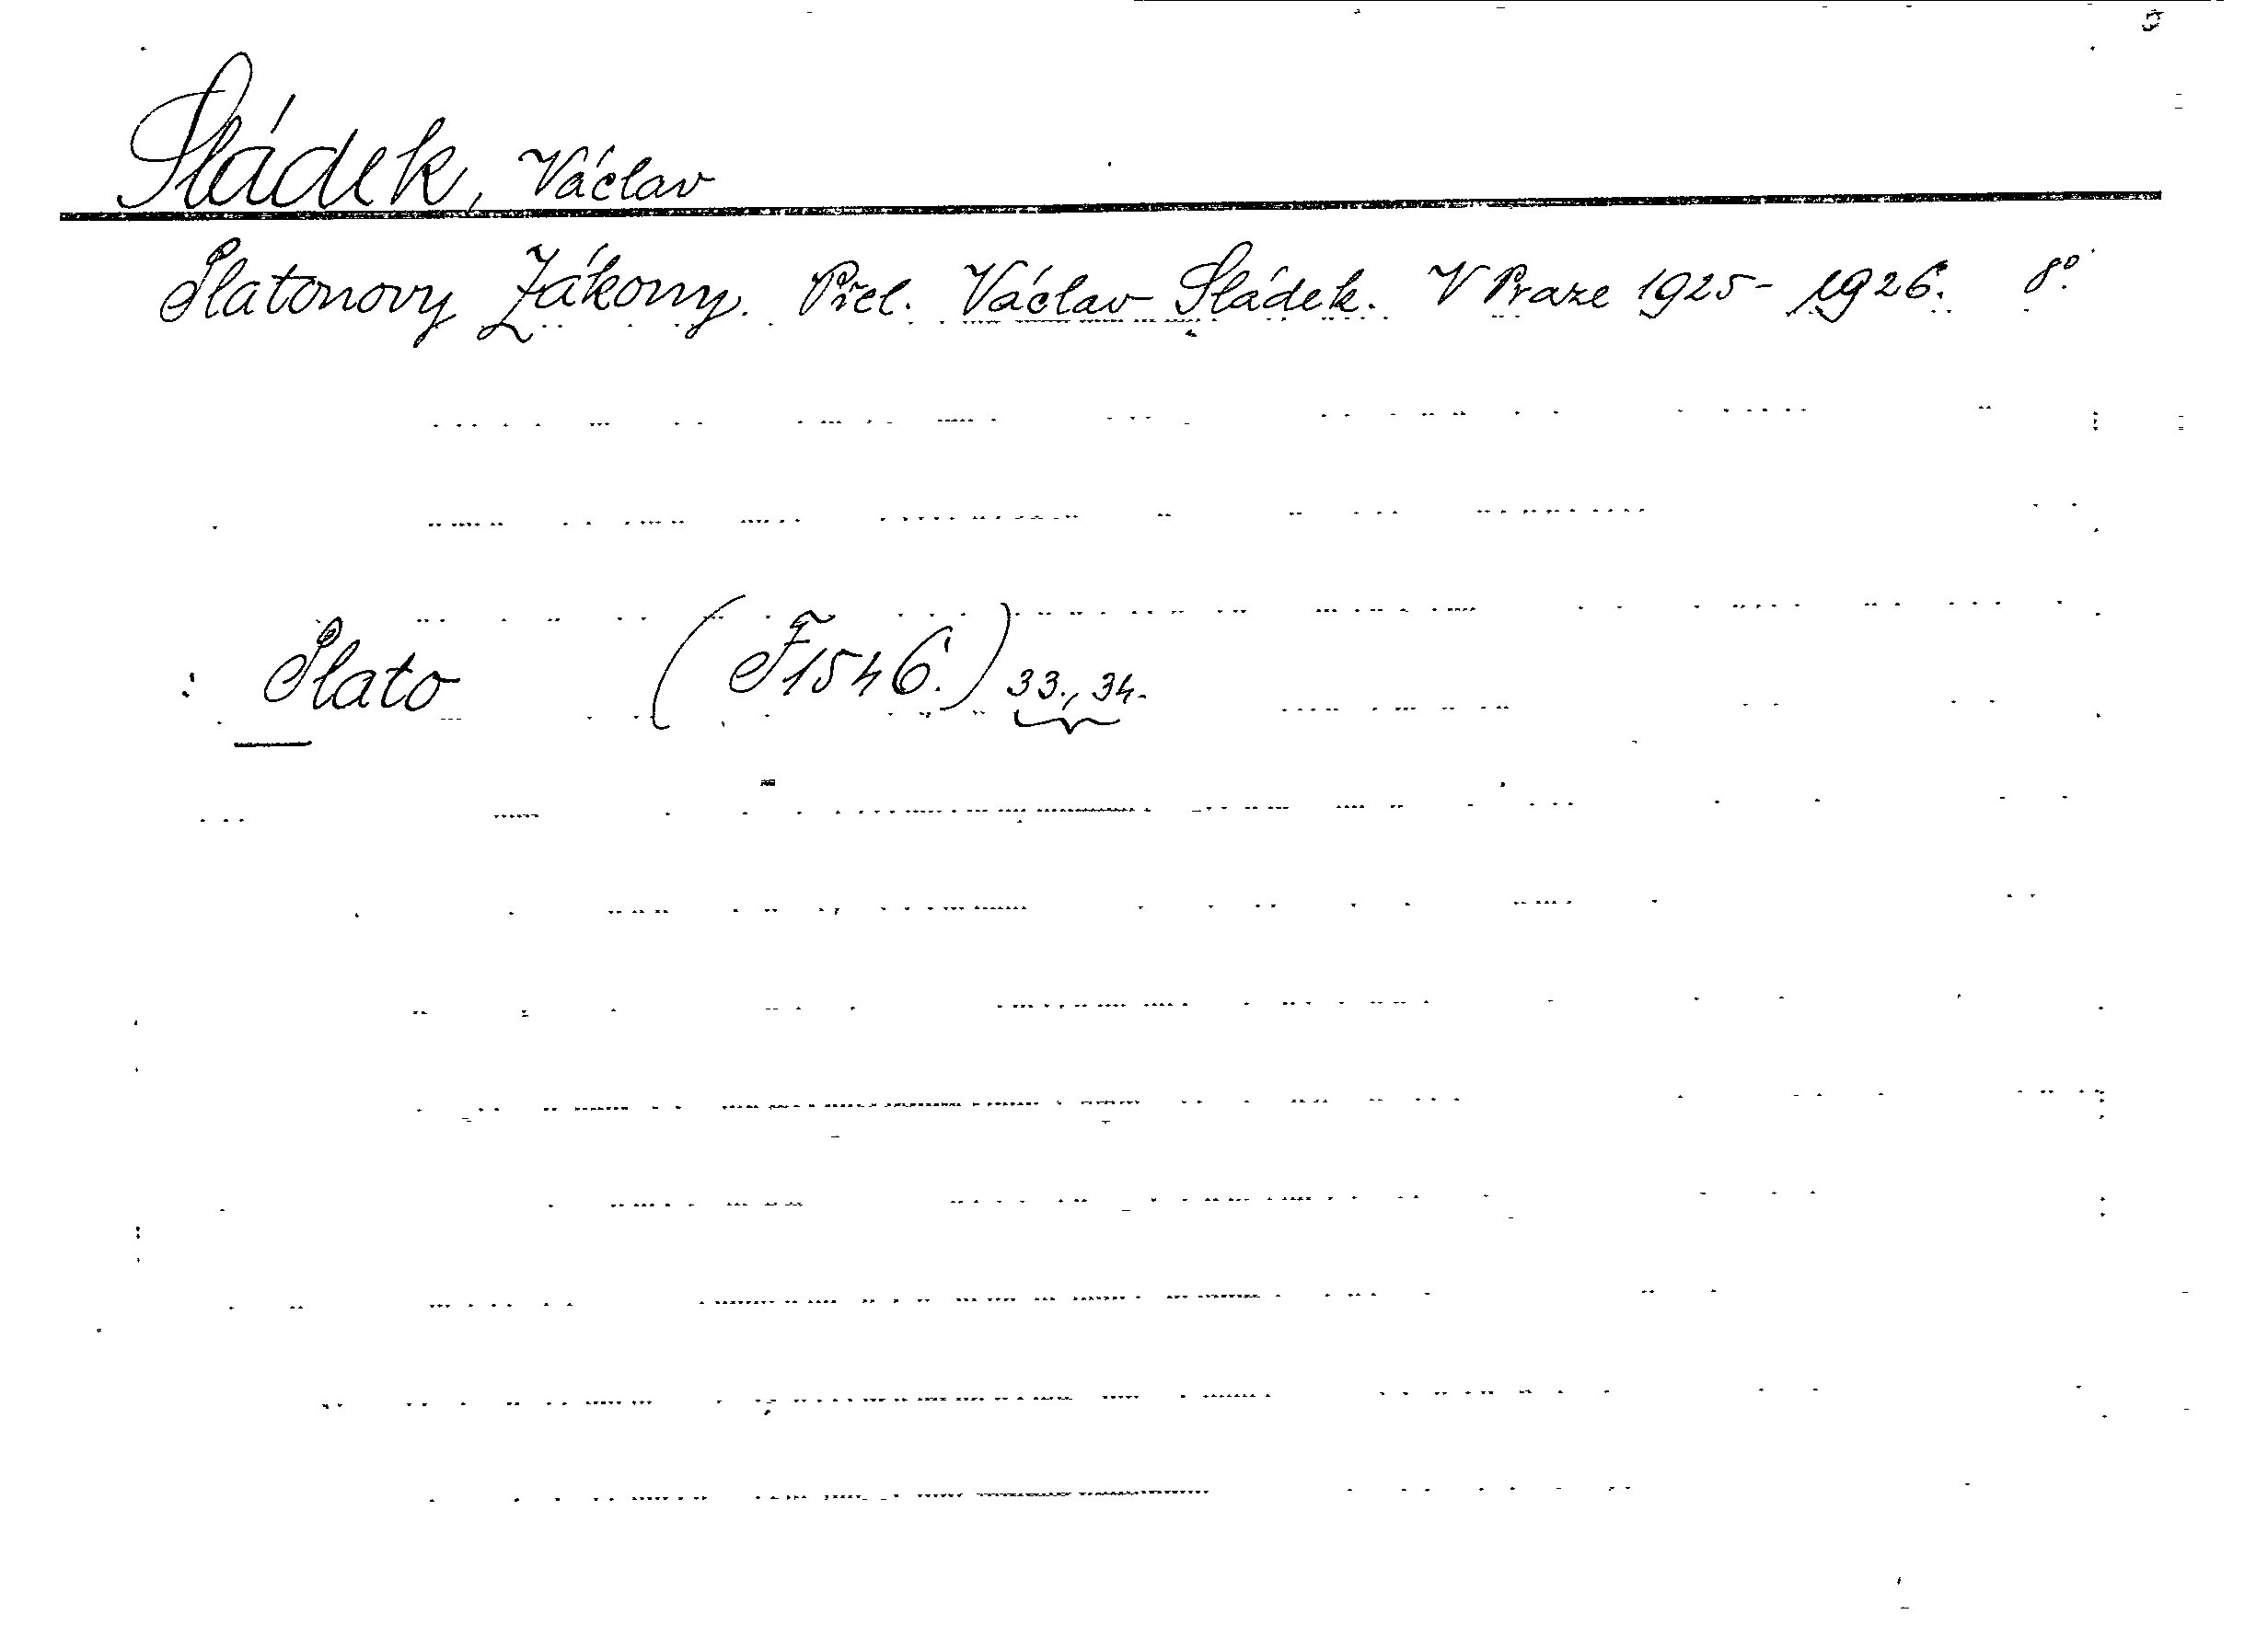 Sládek, Václav
Platonovy Zákony. Přel. Václav Sládek. V Praze 1925-1926. 8°.
: Plato (F1546.) 33., 34.